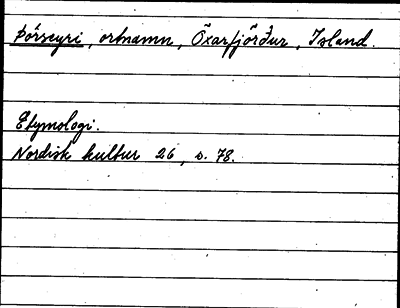 Þórseyri, ortnamn, Öxarfjörður, Island.
Etymologi.
Nordisk kultur 26, s. 78.